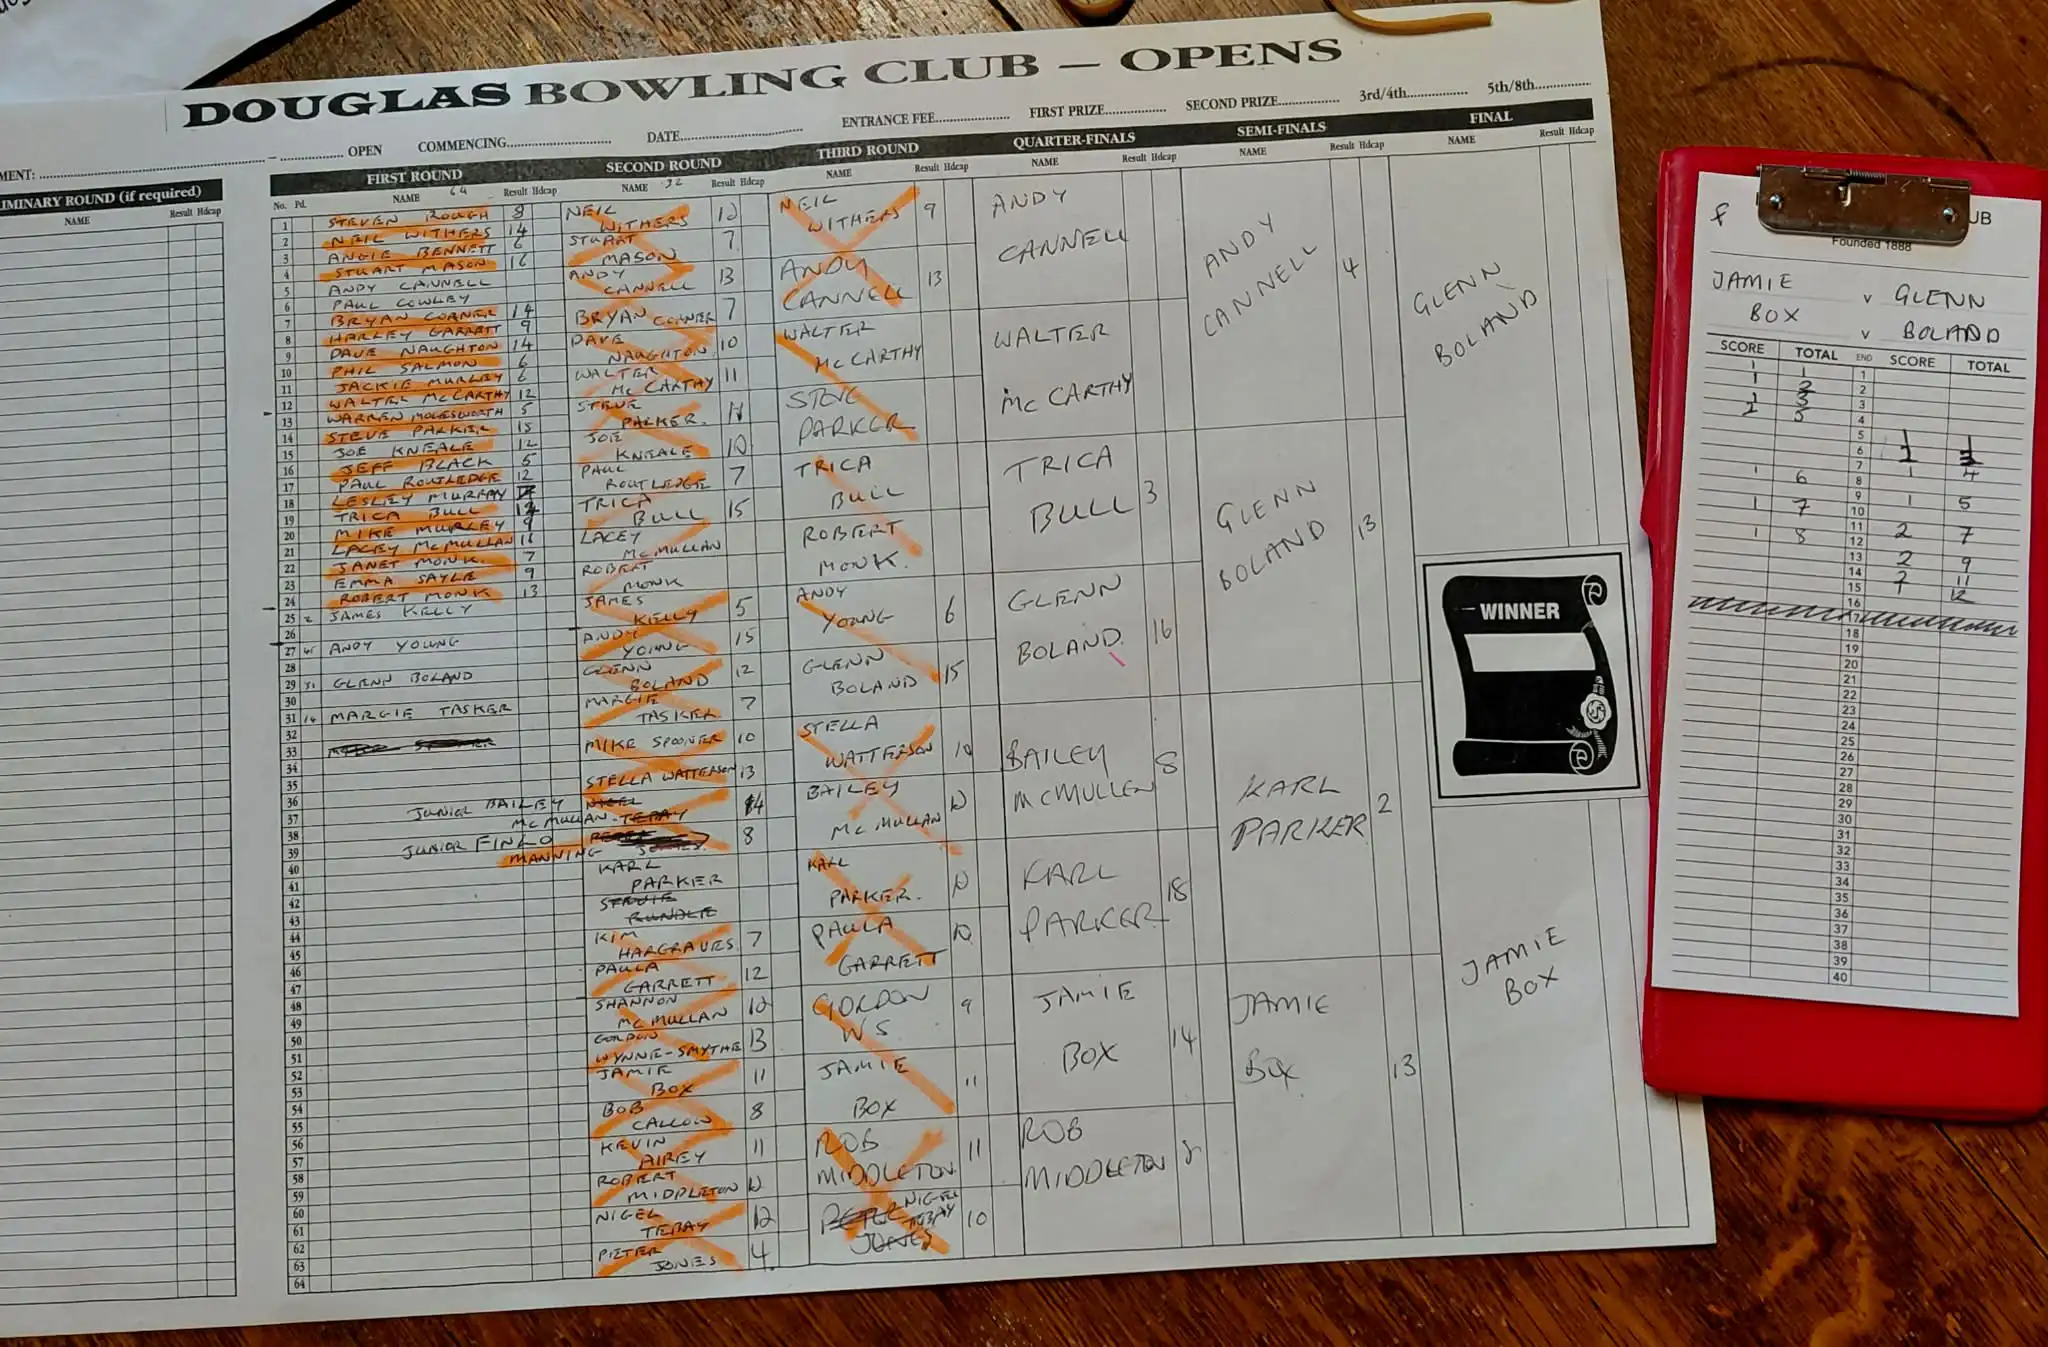 DOUGLAS BOWLING CLUB – OPENS
MENT: – OPEN COMMENCING DATE ENTRANCE FEE FIRST PRIZE SECOND PRIZE 3rd/4th 5th/8th
LIMINARY ROUND (if required)
NAME Result Hdcap
FIRST ROUND
No. Pd. NAME 64 Result Hdcap
1 STEVEN ROUGH 8
2 NEIL WITHERS 14
3 ANGIE BENNETT 6
4 STUART MASON 16
5 ANDY CANNELL
6 PAUL COWLEY
7 BRYAN CORNER 14
8 HARLEY GARRETT 9
9 DAVE NAUGHTON 14
10 PHIL SALMON 6
11 JACKIE MURLEY 6
12 WALTER McCARTHY 12
13 WARREN MOLESWORTH 5
14 STEVE PARKER 15
15 JOE KNEALE 12
16 JEFF BLACK 5
17 PAUL ROUTLEDGE 12
18 LESLEY MURRAY
19 TRICA BULL
20 MIKE MURLEY 9
21 LACEY McMULLAN 16
22 JANET MONK 7
23 EMMA SAYLE 9
24 ROBERT MONK 13
25 JAMES KELLY
26
27 ANDY YOUNG
28
29 31 GLENN BOLAND
30
31 14 MARGIE TASKER
32
33
34
35
36
37 JUNIOR BAILEY McMULLAN
38
39 JUNIOR FINLO MANNING
40
41
42
43
44
45
46
47
48
49
50
51
52
53
54
55
56
57
58
59
60
61
62
63
64
SECOND ROUND
NAME 32 Result Hdcap
NEIL WITHERS 12
STUART MASON 7
ANDY CANNELL 13
BRYAN CORNER 7
DAVE NAUGHTON 10
WALTER McCARTHY 11
STEVE PARKER 11
JOE KNEALE 10
PAUL ROUTLEDGE 7
TRICA BULL 15
LACEY McMULLAN
ROBERT MONK
JAMES KELLY 5
ANDY YOUNG 15
GLENN BOLAND 12
MARGIE TASKER 7
MIKE SPOONER 10
STELLA WATTERSON 13
NIGEL TEBAY 14
8
KARL PARKER
STEVIE RUNDLE
KIM HARGRAVES 7
PAULA GARRETT 12
SHANNON McMULLAN 10
GORDON WYNNE-SMYTHE 13
JAMIE BOX 11
BOB CALLOW 8
KEVIN AIREY 11
ROBERT MIDDLETON 12
NIGEL TEBAY 12
PETER JONES 4
THIRD ROUND
NAME Result Hdcap
NEIL WITHERS 9
ANDY CANNELL 13
WALTER McCARTHY
STEVE PARKER
TRICA BULL
ROBERT MONK.
ANDY YOUNG 6
GLENN BOLAND 15
STELLA WATTERSON 10
BAILEY McMULLAN 12
KARL PARKER. 12
PAULA GARRETT 10
GORDON WS 9
JAMIE BOX 11
ROB MIDDLETON 11
PETER JONES NIGEL TEBAY 10
QUARTER-FINALS
NAME Result Hdcap
ANDY CANNELL
WALTER McCARTHY
TRICA BULL 3
GLENN BOLAND 16
BAILEY McMULLEN 8
KARL PARKER 18
JAMIE BOX 14
ROB MIDDLETON
SEMI-FINALS
NAME Result Hdcap
ANDY CANNELL 4
GLENN BOLAND 13
KARL PARKER 2
JAMIE BOX 13
FINAL
NAME Result Hdcap
GLENN BOLAND
WINNER
JAMIE BOX
UB
Founded 1888
JAMIE v GLENN
BOX v BOLAND
SCORE TOTAL END SCORE TOTAL
1 1 1
1 2 2
1 3 3
2 5 4
5 1 1
6
7 1 4
1 6 8
9 1 5
1 7 10
11 2 7
1 8 12
13 2 9
14 2 11
15 1 12
16
17
18
19
20
21
22
23
24
25
26
27
28
29
30
31
32
33
34
35
36
37
38
39
40